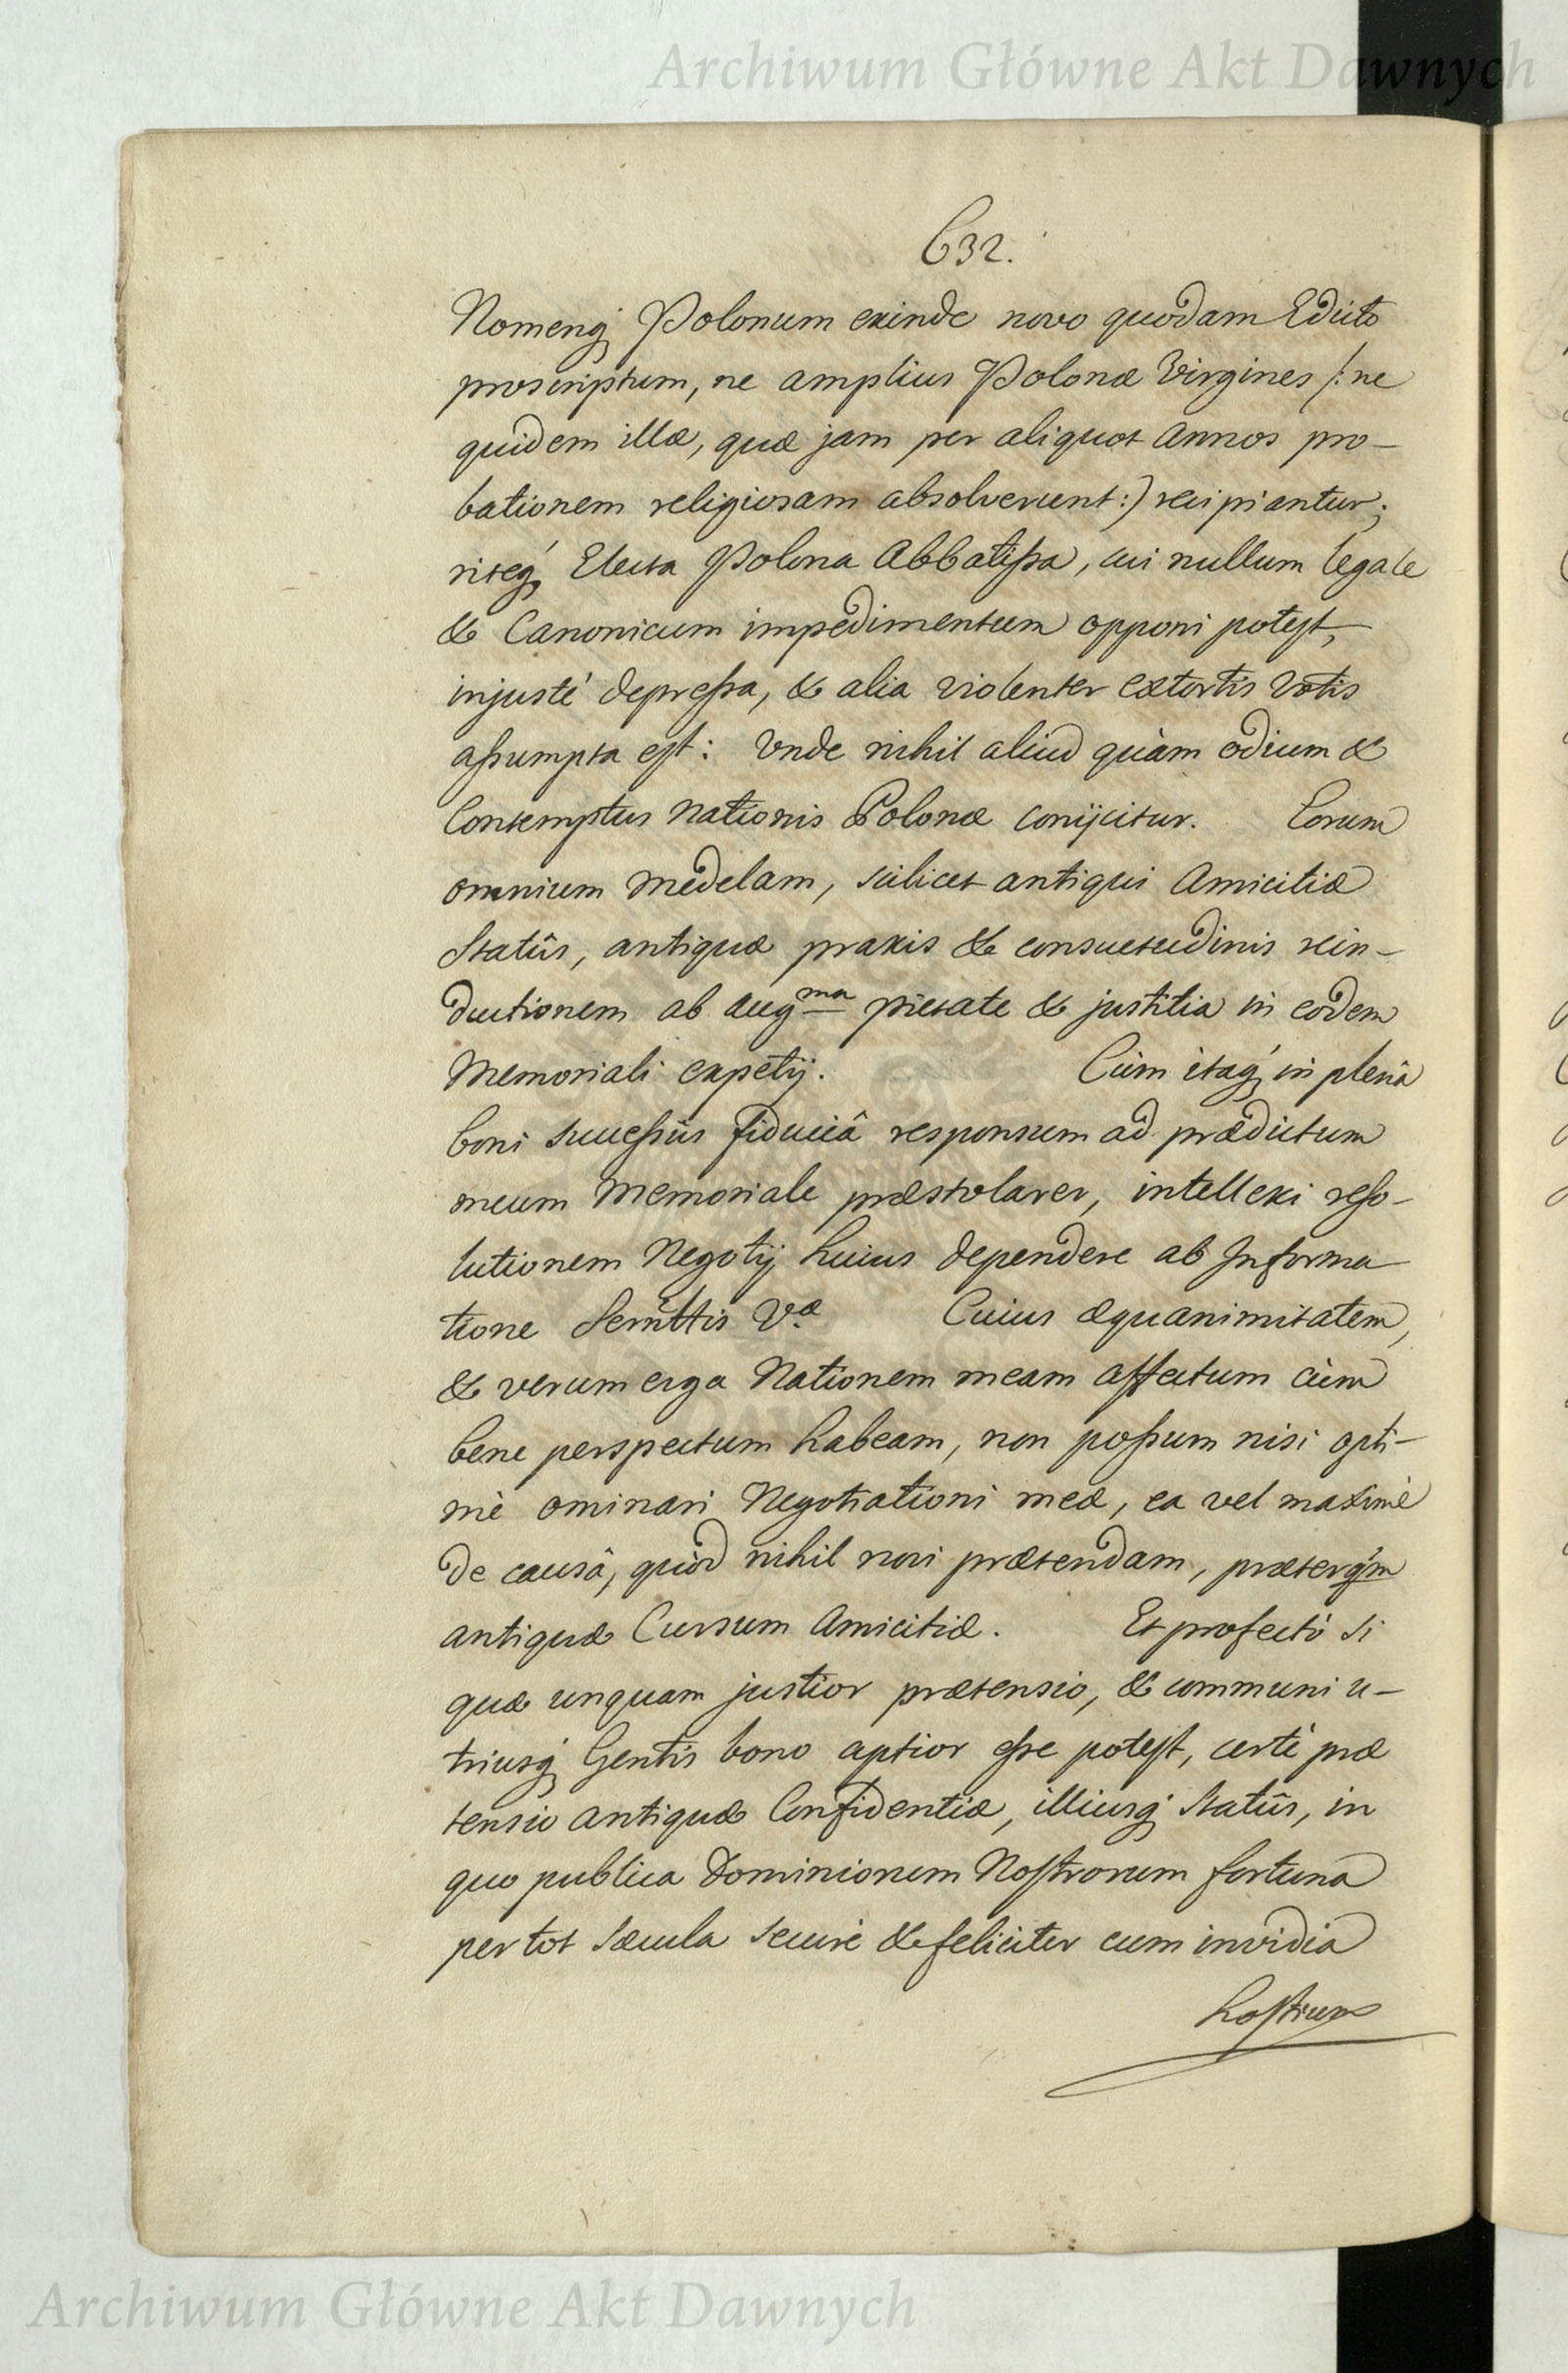 Archiwum Główne Akt Dawnych
632.
Nomenq́ Polonum exinde novo quodam Edicto
proscriptum, ne amplius Polonæ Virgines /: ne
quidem illæ, quæ jam per aliquot annos pro-
bationem religiosam absolverunt :) recipiantur;
riteq́ Electa Polona Abbatißa, cui nullum legale
& Canonicum impedimentum opponi potest,
injustè depreßa, & alia violenter extortis Votis
aßumpta est: Unde nihil aliud quàm odium &
Contemptus Nationis Polonæ conijcitur. Eorum
omnium medelam, scilicet antiqui Amicitiæ
Statûs, antiquæ praxis & consuetudinis rein-
ductionem ab aug^ma pietate & justitia in eodem
Memoriali expetij. Cùm itaq́ in plenâ
boni succeßûs fiduciâ responsum ad prædictum
meum Memoriale præstolarer, intellexi reso-
lutionem Negotij huius dependere ab Informa
tione Sernittis Væ Cuius æquanimitatem,
& verum erga Nationem meam affectum cùm
bene perspectum habeam, non poßum nisi opti-
mè ominari Negotiationi meæ, ea vel maximè
de causâ, quòd nihil novi prætendam, præterq́m
antiquæ Cursum Amicitiæ. Et profectò si
quæ unquam justior prætensio, & communi u-
triusq́ Gentis bono aptior eße potest, certè præ
tensio antiquæ Confidentiæ, illiusq́ Statûs, in
quo publica Dominionum Nostrorum fortuna
per tot sæcula securè & feliciter cum invidia
hostium
Archiwum Główne Akt Dawnych